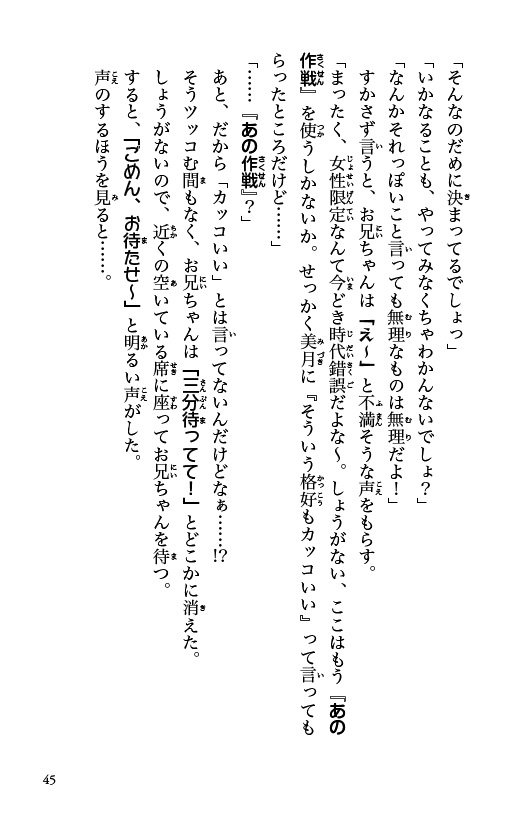 「そんなのだめに決まってるでしょっ」
「いかなることも、やってみなくちゃわかんないでしょ？」
「なんかそれっぽいこと言っても無理なものは無理だよ！」
すかさず言うと、お兄ちゃんは「え～」と不満そうな声をもらす。
「まったく、女性限定なんて今どき時代錯誤だよな～。しょうがない、ここはもう『あの
作戦』を使うしかないか。せっかく美月に『そういう格好もカッコいい』って言っても
らったところだけど……」
「……『あの作戦』？」
あと、だから「カッコいい」とは言ってないんだけどなぁ……!?
そうツッコむ間もなく、お兄ちゃんは「三分待ってて！」とどこかに消えた。
しょうがないので、近くの空いている席に座ってお兄ちゃんを待つ。
すると、「ごめん、お待たせ～」と明るい声がした。
声のするほうを見ると……。
45